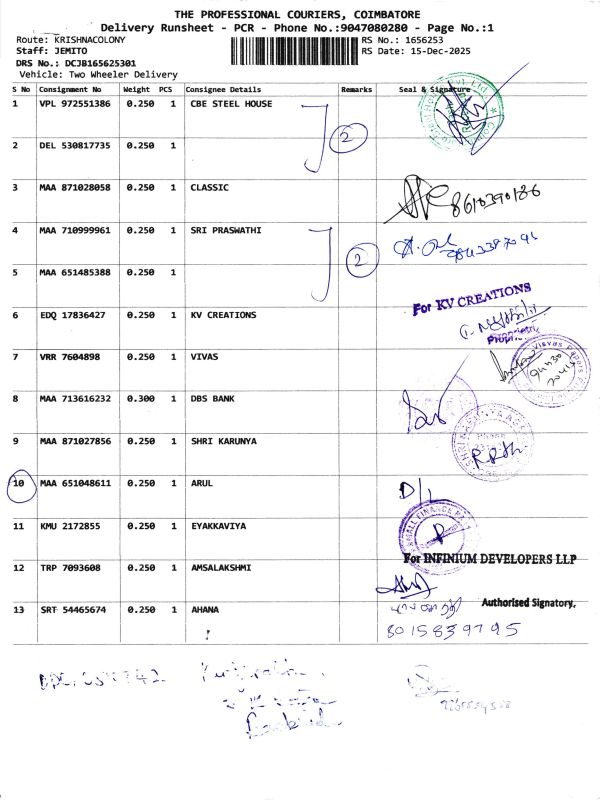 THE PROFESSIONAL COURIERS, COIMBATORE
Delivery Runsheet - PCR - Phone No.:9047080280 - Page No.:1
Route: KRISHNACOLONY RS No.: 1656253
Staff: JEMITO RS Date: 15-Dec-2025
DRS No.: DCJB165625301
Vehicle: Two Wheeler Delivery
S No Consignment No Weight PCS Consignee Details Remarks Seal & Signature
1 VPL 972551386 0.250 1 CBE STEEL HOUSE
2
2 DEL 530817735 0.250 1
3 MAA 871028058 0.250 1 CLASSIC 8610390186
4 MAA 710999961 0.250 1 SRI PRASWATHI
2
5 MAA 651485388 0.250 1
6 EDQ 17836427 0.250 1 KV CREATIONS For KV CREATIONS
7 VRR 7604898 0.250 1 VIVAS
8 MAA 713616232 0.300 1 DBS BANK
9 MAA 871027856 0.250 1 SHRI KARUNYA
10 MAA 651048611 0.250 1 ARUL D/L
11 KMU 2172855 0.250 1 EYAKKAVIYA
For INFINIUM DEVELOPERS LLP
12 TRP 7093608 0.250 1 AMSALAKSHMI
13 SRT 54465674 0.250 1 AHANA Authorised Signatory.
8015839795